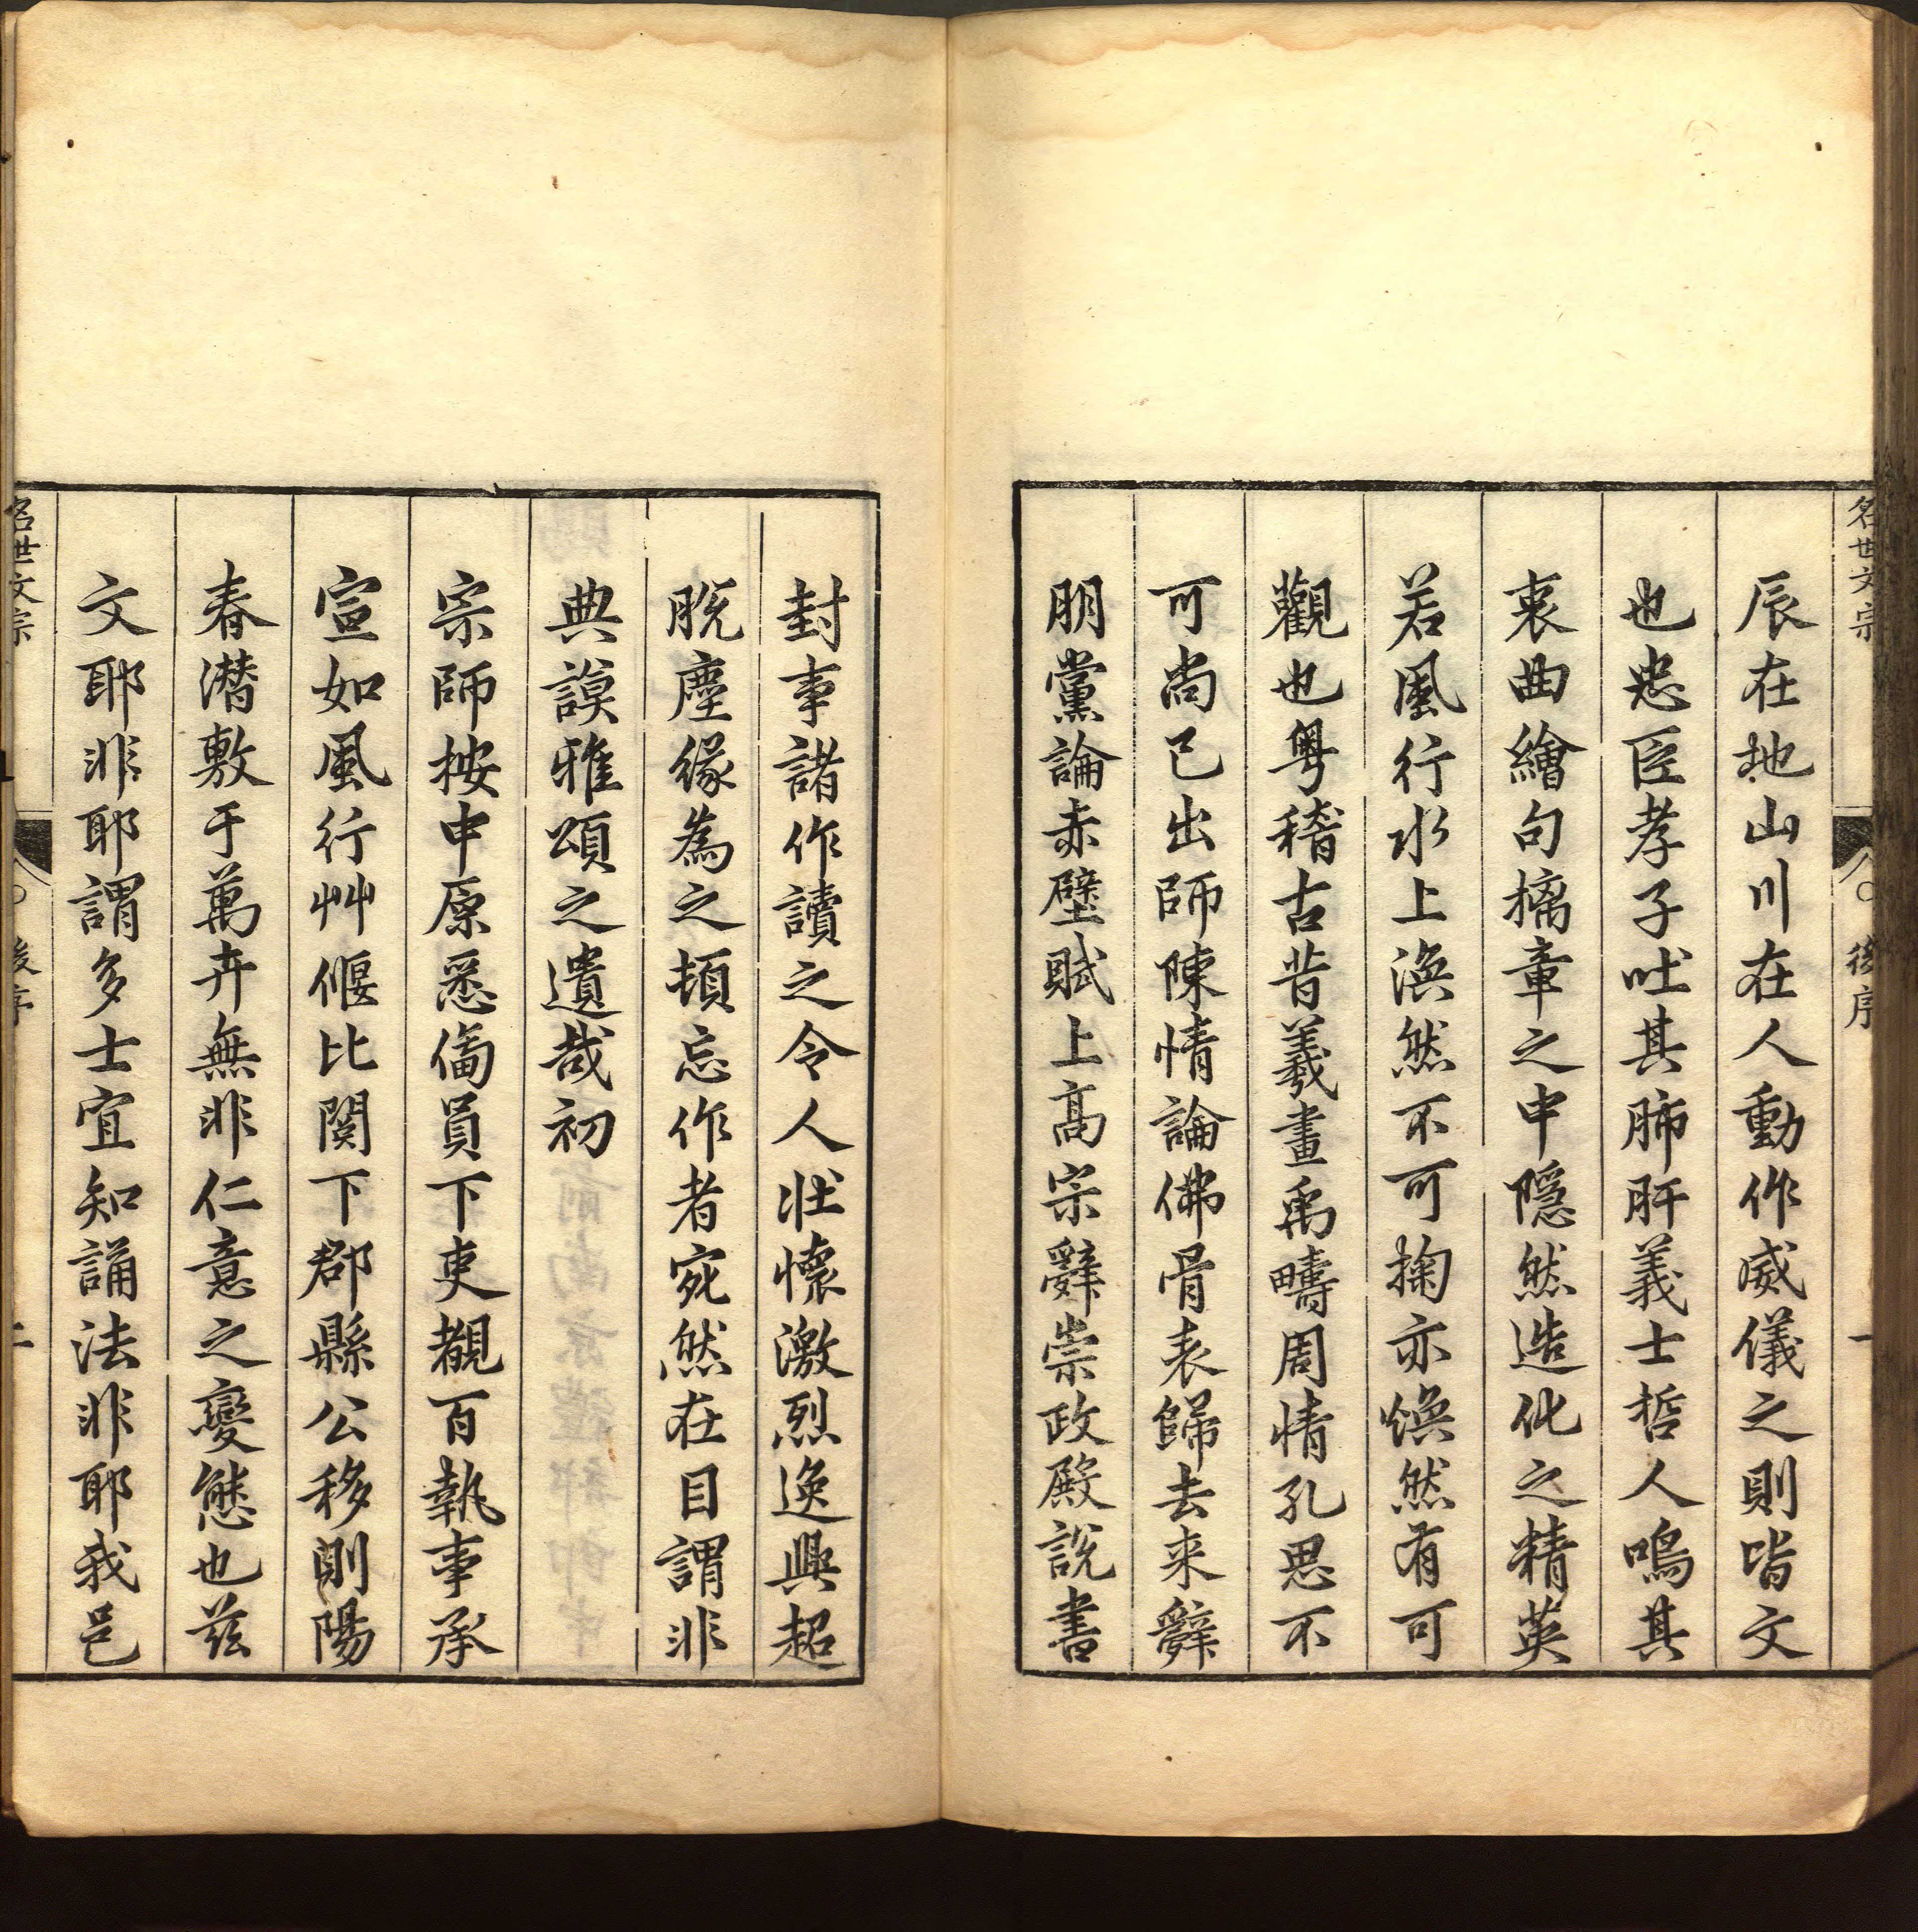 名世文宗 後序 一
辰在地山川在人動作威儀之則皆文
也忠臣孝子吐其肺肝義士哲人鳴其
衷曲繪句摛章之中隱然造化之精英
若風行水上渙然不可掬亦煥然有可
觀也粤稽古昔羲畫禹疇周情孔思不
可尚已出師陳情論佛骨表歸去来辭
朋黨論赤壁賦上髙宗辭崇政殿説書
封事諸作讀之令人壯懷激烈逸興超
脱塵緣為之頓忘作者宛然在目謂非
典謨雅頌之遺哉初
宗師按中原悉俻員下吏覩百執事承
宣如風行艸偃比関下郡縣公移則陽
春潛敷于萬卉無非仁意之變態也兹
文耶非耶謂多士宜知誦法非耶我邑
名世文宗 後序 二